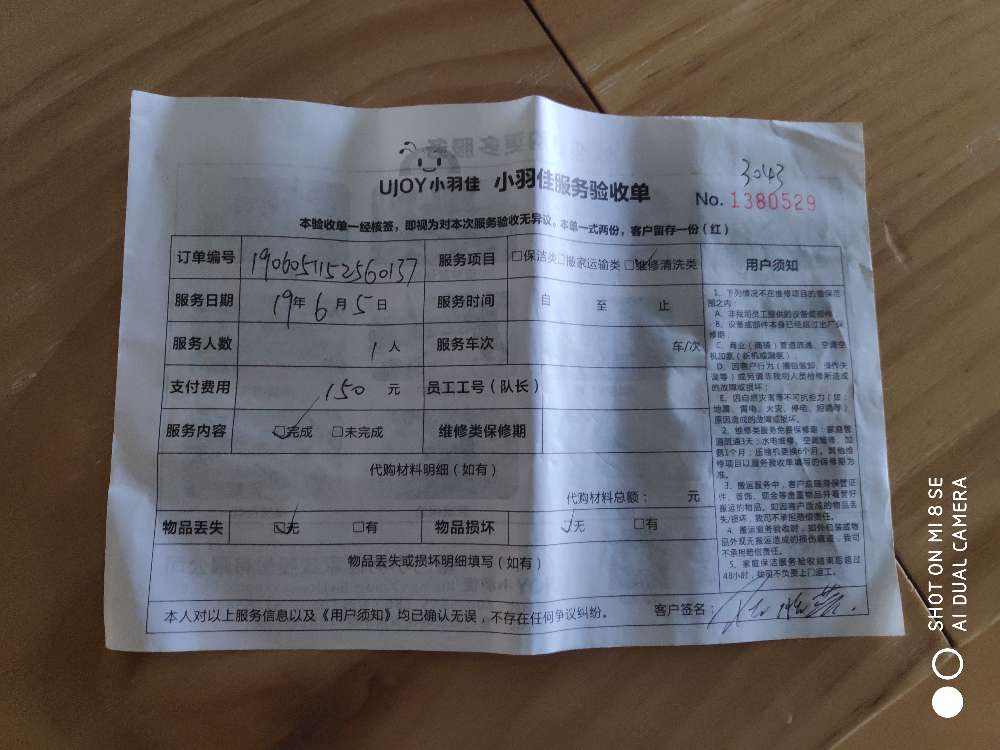 3043
UJOY小羽佳 小羽佳服务验收单
No. 1380529
本验收单一经核签，即视为对本次服务验收无异议。本单一式两份，客户留存一份（红）
订单编号 1906051152560137 服务项目 □保洁类□搬家运输类☑维修清洗类
服务日期 19年6月5日 服务时间 自 至 止
服务人数 1人 服务车次 车/次
支付费用 150 元 员工工号（队长）
服务内容 ☑完成 □未完成 维修类保修期
代购材料明细（如有）
代购材料总额： 元
物品丢失 ☑无 □有 物品损坏 ☑无 □有
物品丢失或损坏明细填写（如有）
本人对以上服务信息以及《用户须知》均已确认无误，不存在任何争议纠纷。 客户签名：
用户须知
1、下列情况不在维修项目的售保范
围之内：
A、非我司员工提供的设备或部件
B、设备或部件本身已经超过出厂保
修期
C、商业（商铺）管道疏通，空调空
机加氨（新机或漏氨）；
D、因客户行为（擅自装卸、操作失
误等）或另请非我司人员检修所造成
的故障或损坏；
E、因自然灾害等不可抗拒力（如：
地震、雷电、火灾、停电、短路等）
原因造成的故障或损坏。
2、维修类服务免费保修期：家庭管
道疏通3天；水电维修、空调维修、加
氨1个月；压缩机更换6个月。其他维
修项目以服务验收单填写的保修期为
准。
3、搬运服务中，客户应随身保管证
件、首饰、现金等贵重物品并看管好
搬运的物品。如因客户造成的物品丢
失/损坏，我司不承担赔偿责任。
4、搬运服务验收时，如外包装或物
品外观无搬运造成的损伤痕迹，我司
不承担赔偿责任。
5、家庭保洁服务验收结束后超过
48小时，我司不负责上门返工。
SHOT ON MI 8 SE
AI DUAL CAMERA